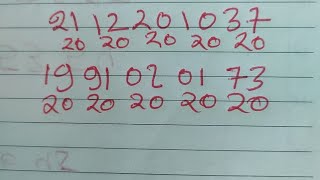 21 12 20 10 37
20 20 20 20 20
19 91 02 01 73
20 20 20 20 20